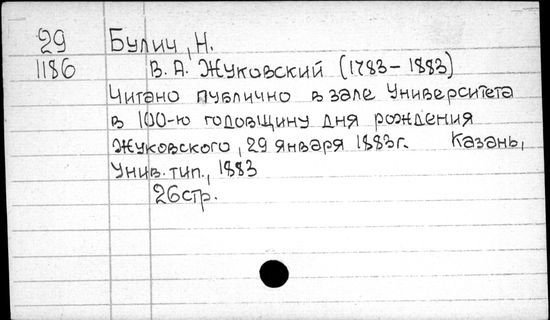 29 Булич, Н.
1186 В. А. Жуковский (1783-1883)
Читано публично в зале Университета
в 100-ю годовщину дня рождения
Жуковского, 29 января 1883г. Казань,
Унив. тип., 1883
26стр.